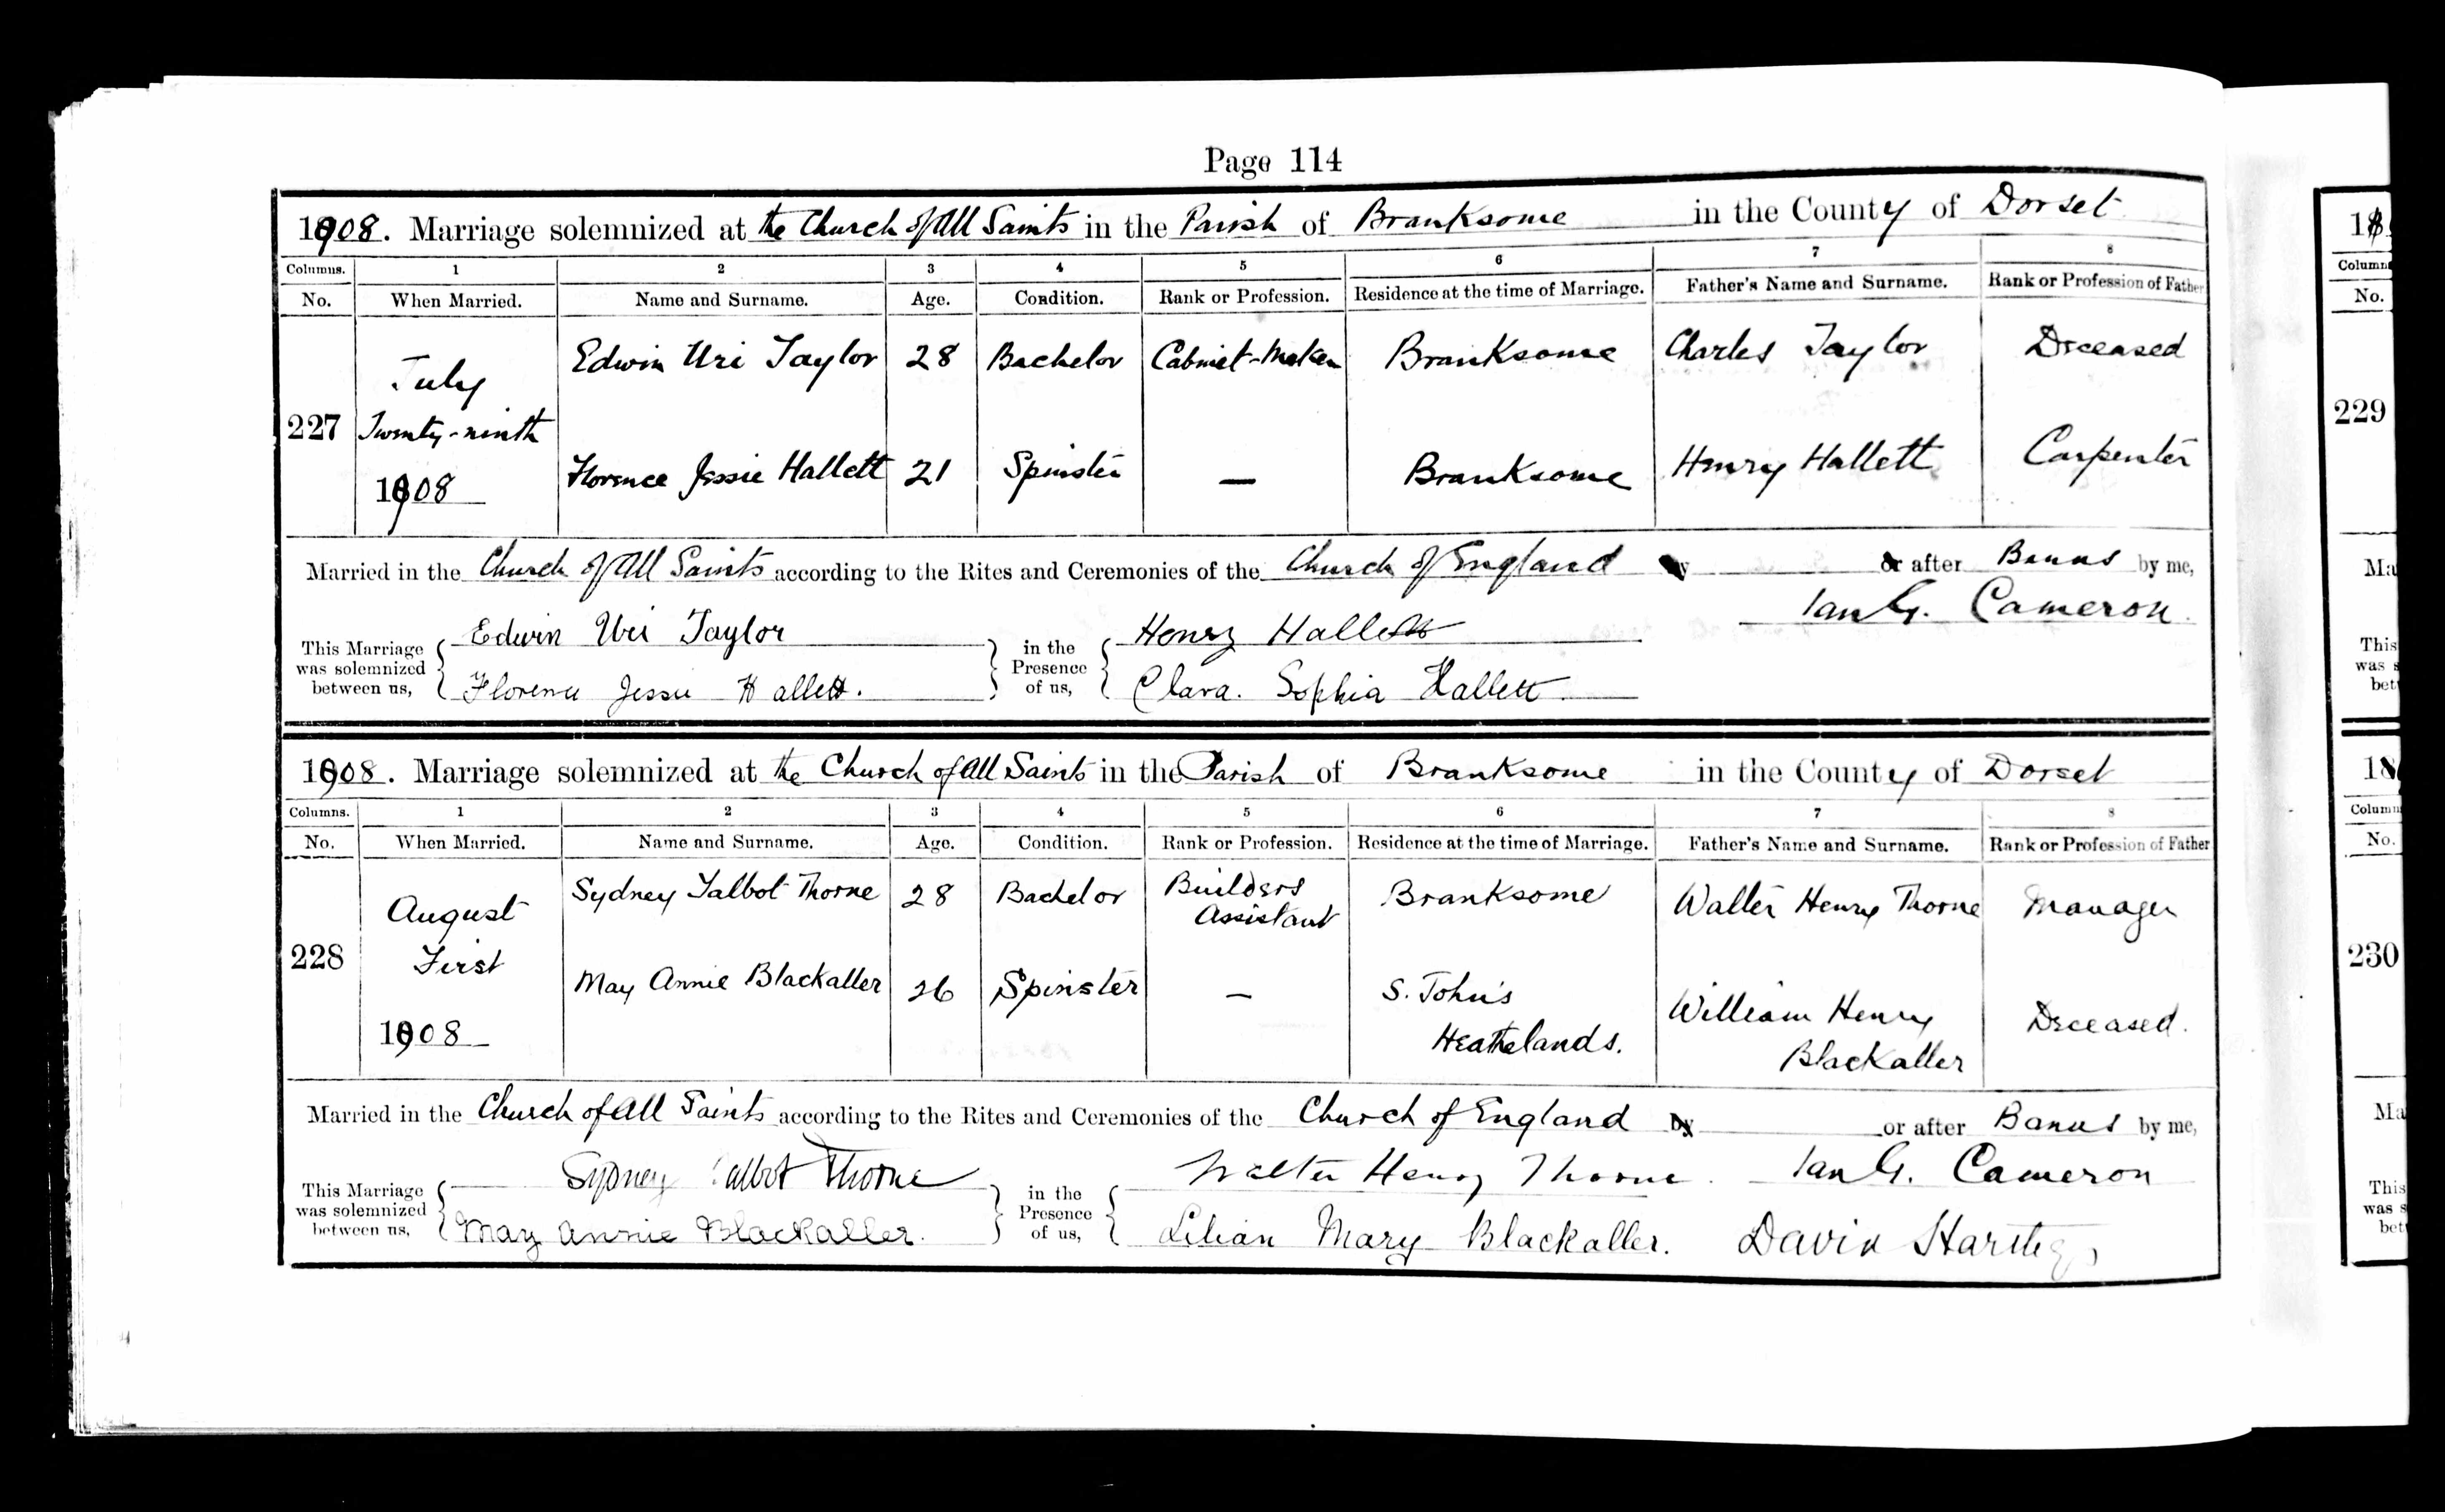 Page 114
1908. Marriage solemnized at the Church of All Saints in the Parish of Branksome in the County of Dorset
Columns. 1 2 3 4 5 6 7 8
No. When Married. Name and Surname. Age. Condition. Rank or Profession. Residence at the time of Marriage. Father's Name and Surname. Rank or Profession of Father
227 July Twenty-ninth 1908
Edwin Uri Taylor 28 Bachelor Cabinet-Maker Branksome Charles Taylor Deceased
Florence Jessie Hallett 21 Spinster — Branksome Henry Hallett Carpenter
Married in the Church of All Saints according to the Rites and Ceremonies of the Church of England by or after Banns by me,
Ian G. Cameron.
This Marriage was solemnized between us, Edwin Uri Taylor in the Presence of us, Henry Hallett
Florence Jessie Hallett. Clara. Sophia Hallett.
1908. Marriage solemnized at the Church of All Saints in the Parish of Branksome in the County of Dorset
Columns. 1 2 3 4 5 6 7 8
No. When Married. Name and Surname. Age. Condition. Rank or Profession. Residence at the time of Marriage. Father's Name and Surname. Rank or Profession of Father
228 August First 1908
Sydney Talbot Thorne 28 Bachelor Builders Assistant Branksome Walter Henry Thorne Manager
May Annie Blackaller 26 Spinster — S. John's Heathelands. William Henry Blackaller Deceased.
Married in the Church of All Saints according to the Rites and Ceremonies of the Church of England by or after Banns by me,
This Marriage was solemnized between us, Sydney Talbot Thorne in the Presence of us, Walter Henry Thorne. Ian G. Cameron
May Annie Blackaller. Lilian Mary Blackaller. David
18
Column
No.
229
Ma
This
was s
bet
18
Column
No.
230
Ma
This
was s
bet